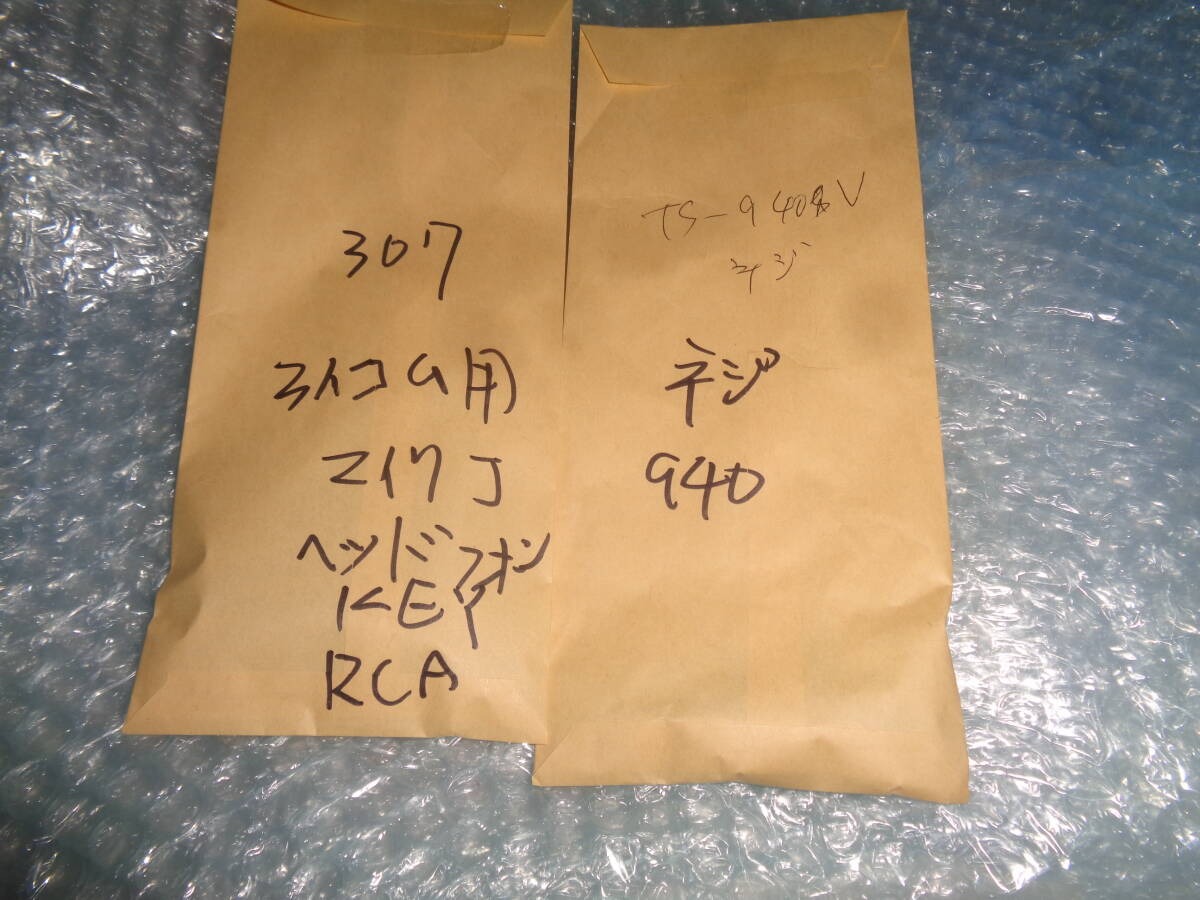 307
アイコム用
マイク J
ヘッドフォン
KEY
RCA
TS-940SV
ネジ
ネジ
940